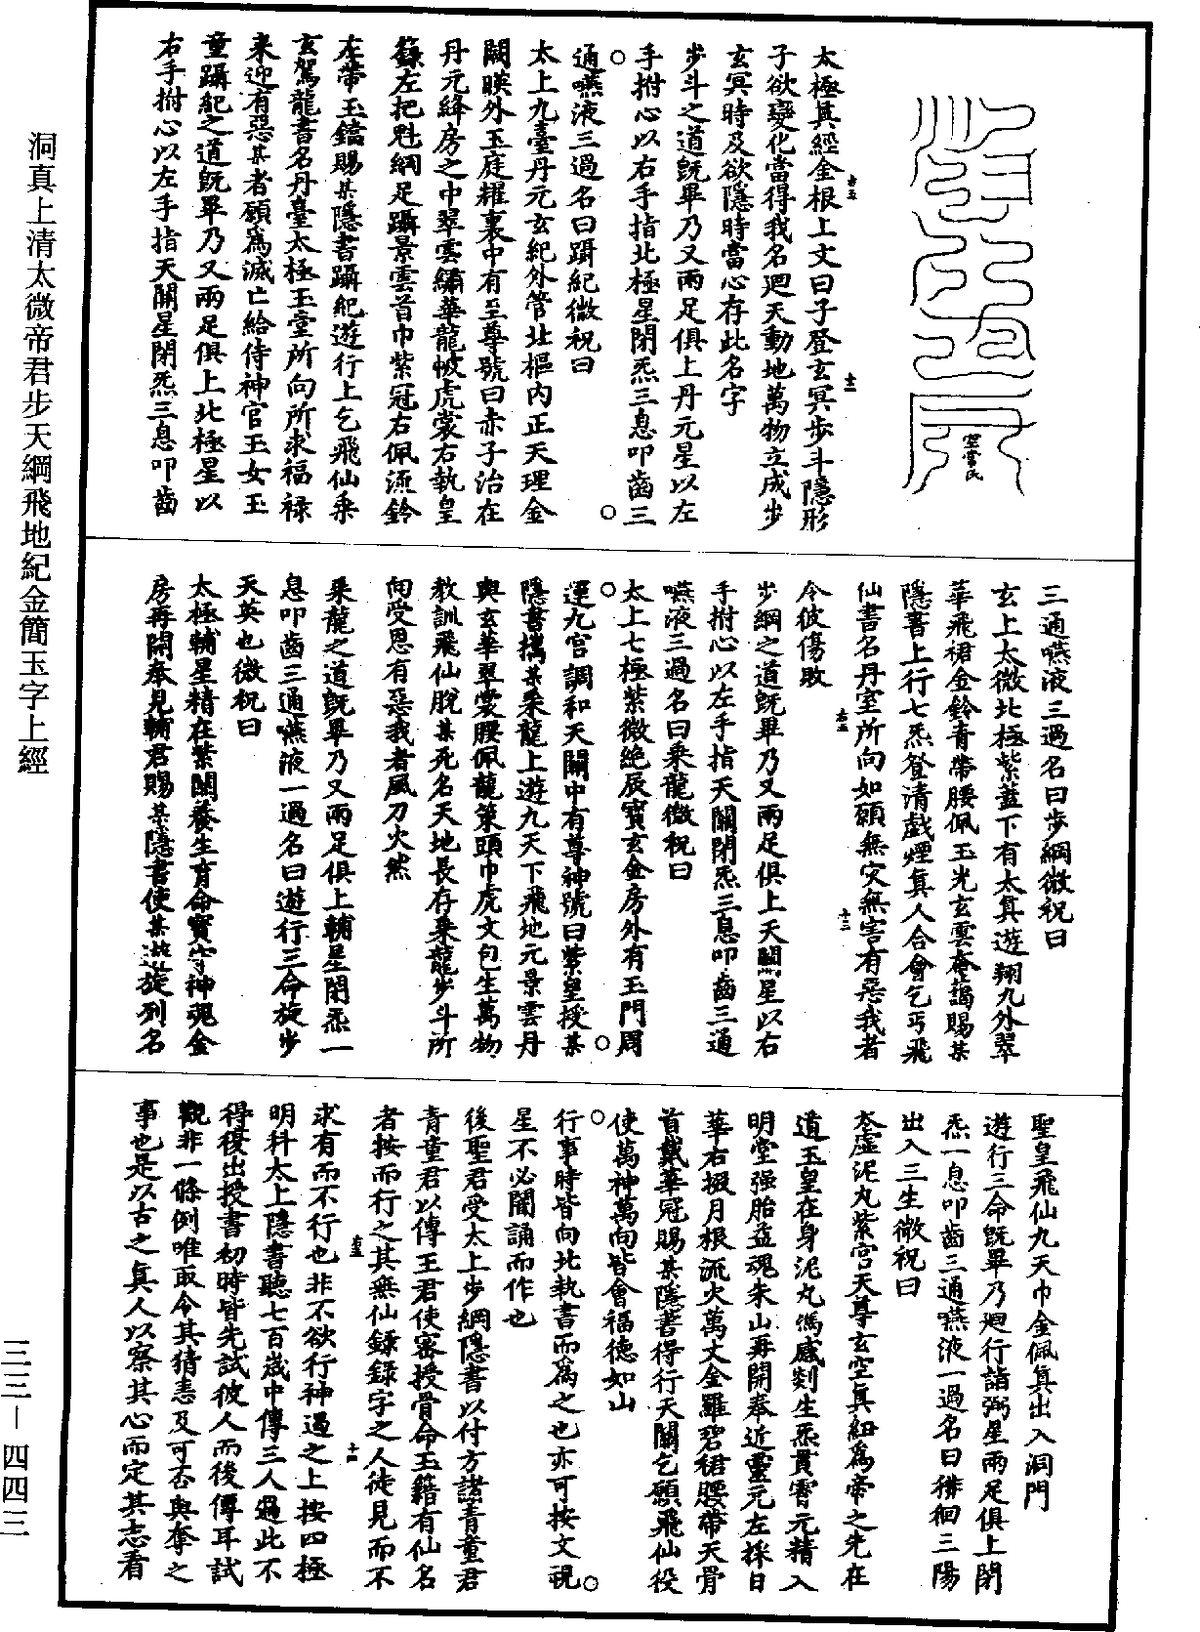 洞真上清太微帝君步天綱飛地紀金簡玉字上經
三三—四四三
空常氏
太極真經金根上文曰子登玄冥步斗隱形
子欲變化當得我名迴天動地萬物立成步
玄冥時及欲隱時當心存此名字
步斗之道旣畢乃又兩足俱上丹元星以左
手拊心以右手指北極星閉炁三息叩齒三
通嚥液三過名曰躡紀微祝曰
太上九臺丹元玄紀外管北樞內正天理金
闕暎外玉庭耀裏中有至尊號曰赤子治在
丹元絳房之中翠雲繡華龍帔虎裳右執皇
籙左把魁綱足躡景雲首巾紫冠右佩流鈴
左帶玉鐺賜某隱書躡紀遊行上乞飛仙乘
玄駕龍書名丹臺太極玉堂所向所求福祿
來迎有惡某者願爲滅亡給侍神官玉女玉
童躡紀之道旣畢乃又兩足俱上北極星以
右手拊心以左手指天關星閉炁三息叩齒
三通嚥液三過名曰步綱微祝曰
玄上太微北極紫蓋下有太真遊翔九外翠
華飛裙金鈴青帶腰佩玉光玄雲奄藹賜某
隱書上行七炁登清戲煙真人合會乞丐飛
仙書名丹室所向如願無灾無害有惡我者
令彼傷敗
步綱之道旣畢乃又兩足俱上天關星以右
手拊心以左手指天關閉炁三息叩齒三通
嚥液三過名曰乘龍微祝曰
太上七極紫微絶辰寶玄金房外有玉門周
運九宮調和天關中有尊神號曰紫皇授某
隱書攜某乘龍上遊九天下飛地元景雲丹
輿玄華翠裳腰佩龍策頭巾虎文包生萬物
教訓飛仙脫某死名天地長存乘龍步斗所
向受恩有惡我者風刀火然
乘龍之道旣畢乃又兩足俱上輔星閉炁一
息叩齒三通嚥液一過名曰遊行三命旋步
天英也微祝曰
太極輔星精在紫關養生育命寶守神魂金
房再開奉見輔君賜某隱書使某遊旋列名
聖皇飛仙九天巾金佩真出入洞門
遊行三命旣畢乃迴行詣弼星兩足俱上閉
炁一息叩齒三通嚥液一過名曰徘徊三陽
出入三生微祝曰
太虛泥丸紫宮天尊玄空真紐爲帝之先在
道玉皇在身泥丸馮感剡生炁貫霄元精入
明堂强胎益魂朱山再開奉近靈元左採日
華右掇月根流火萬丈金羅碧裙腰帶天骨
首戴華冠賜某隱書得行天關乞願飛仙役
使萬神萬向皆會福德如山
行事時皆向北執書而爲之也亦可按文視
星不必闇誦而作也
後聖君受太上步綱隱書以付方諸青童君
青童君以傳王君使密授骨命玉籍有仙名
者按而行之其無仙錄錄字之人徒見而不
求有而不行也非不欲行神遏之上按四極
明科太上隱書聽七百歲中傳三人過此不
得復出授書初時皆先試彼人而後傳耳試
觀非一條例唯取令其猜恚及可否與奪之
事也是以古之真人以察其心而定其志看